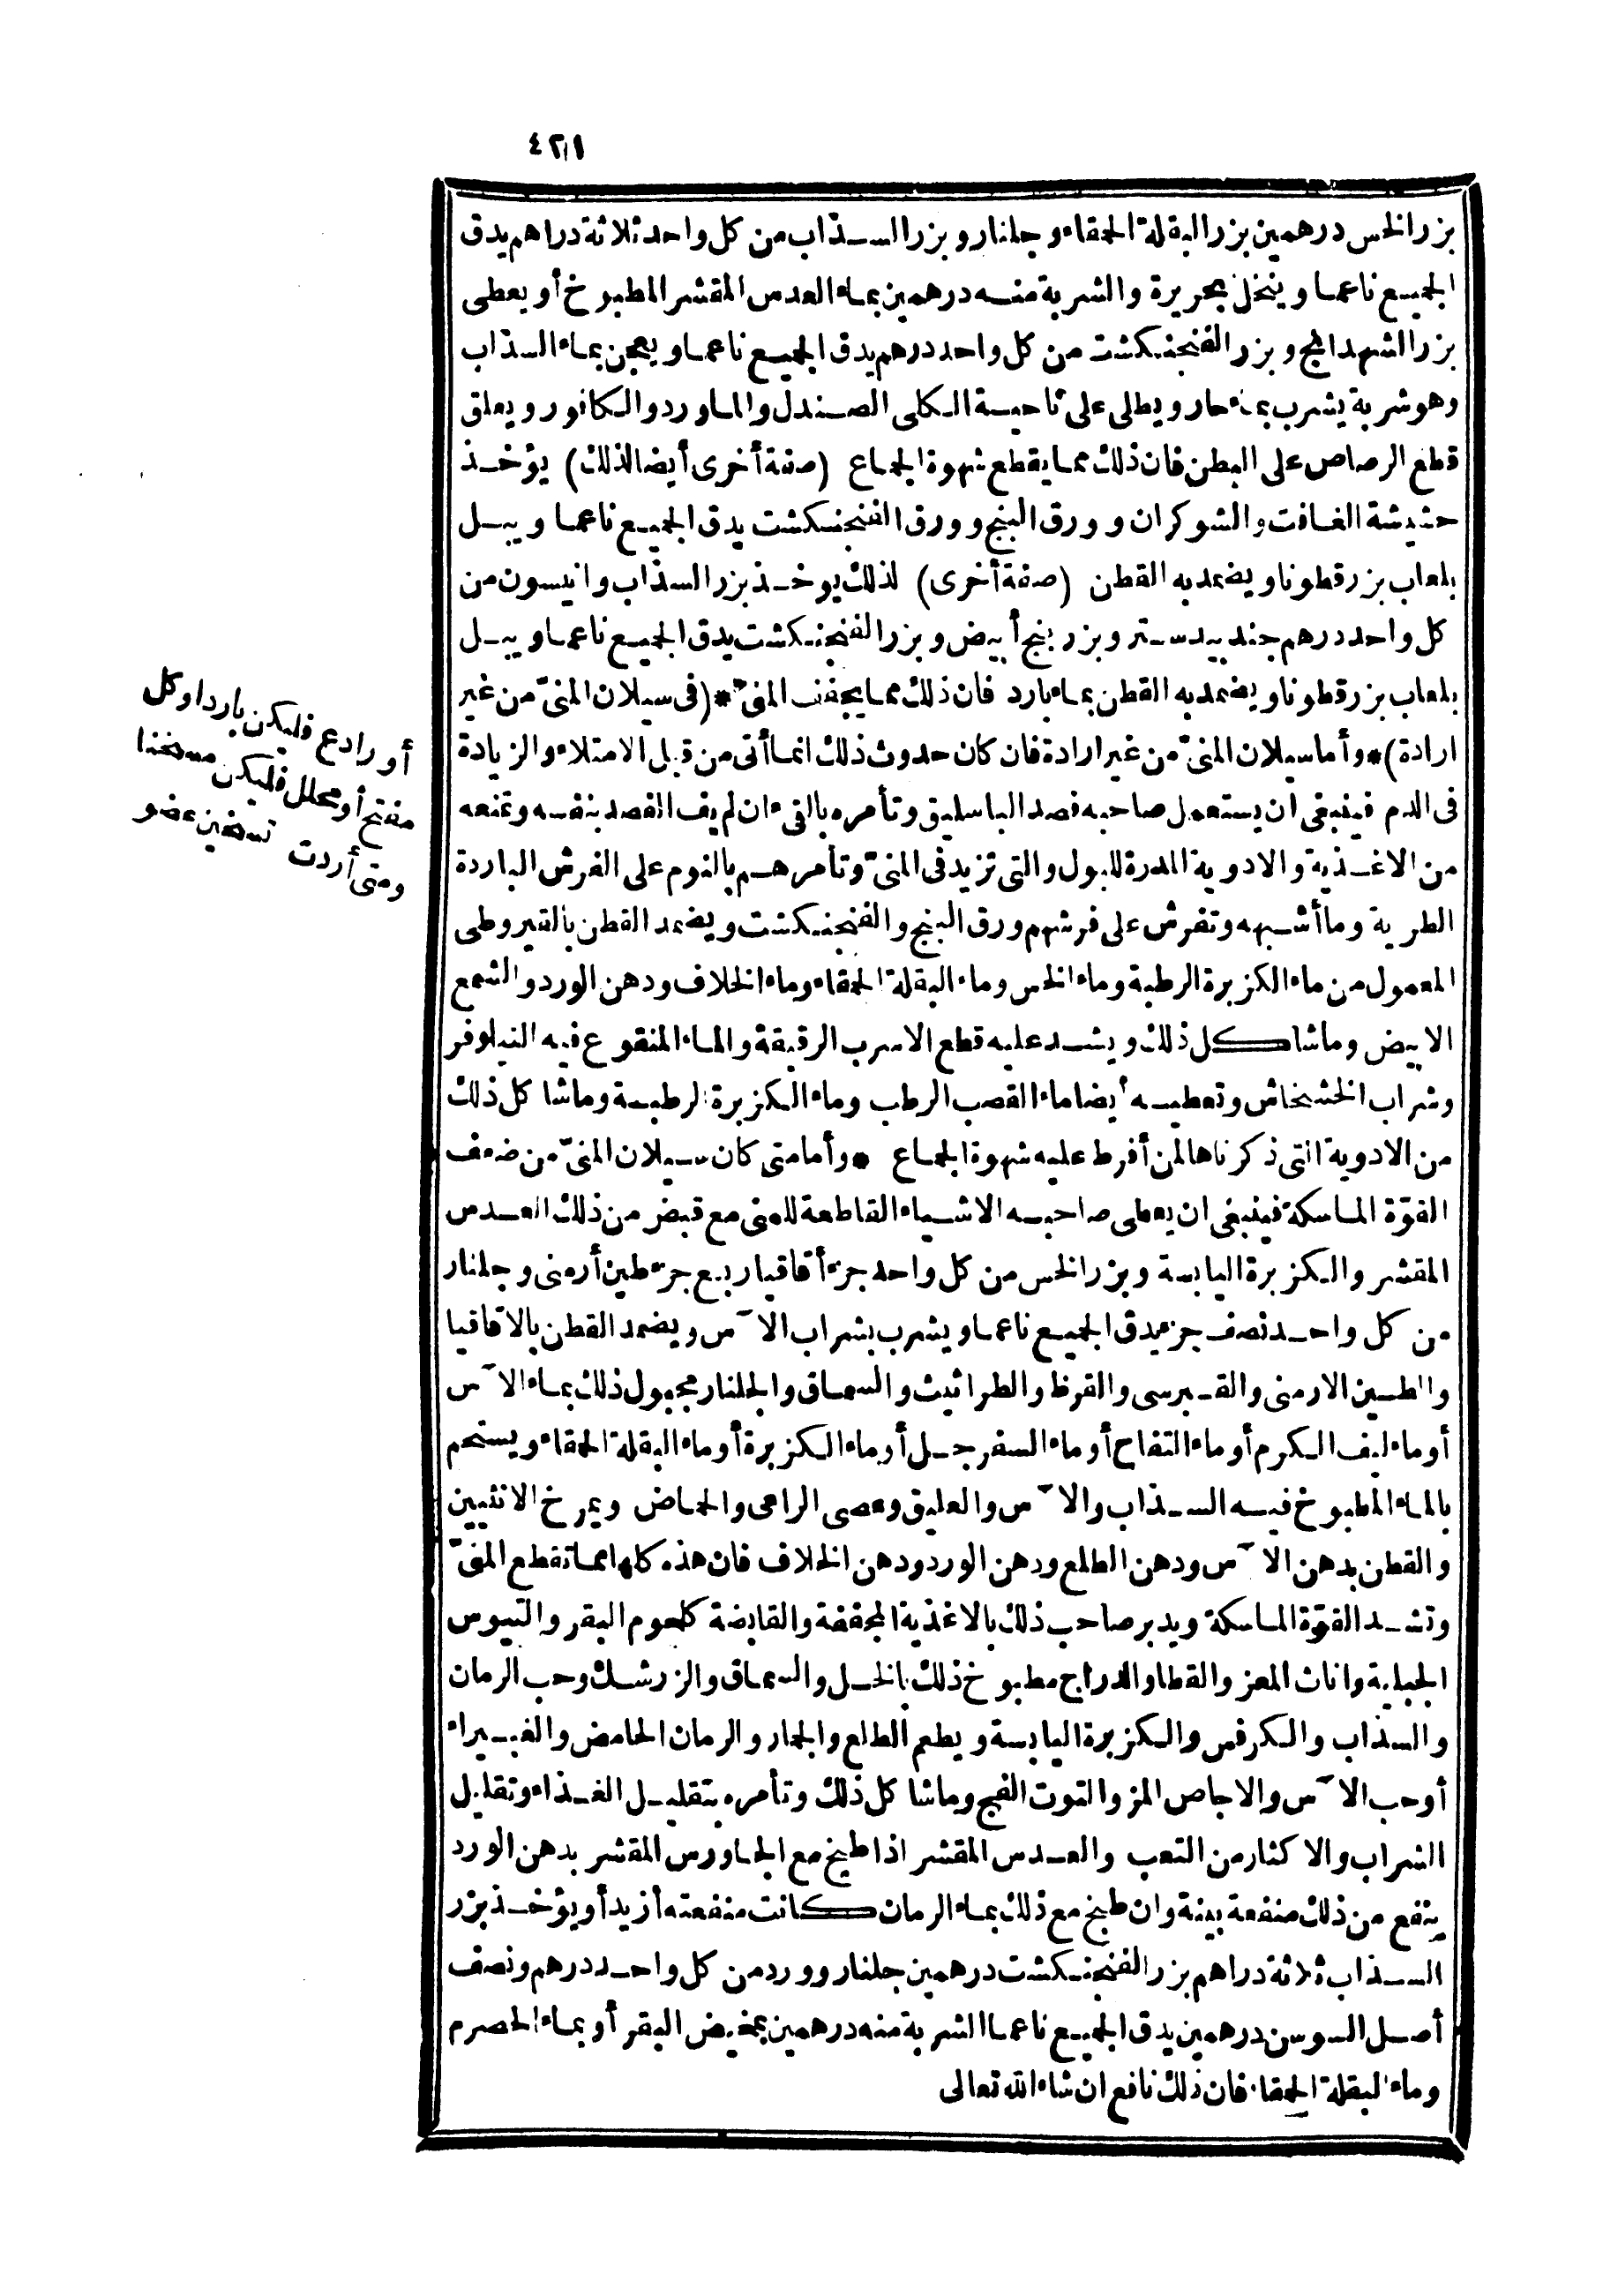 ٤٢١
بزر الخس درهمين بزر البقلة الحمقاء وجلنار وبزر السذاب من كل واحد ثلاثة دراهم يدق
الجميع ناعما وينخل بحريرة والشربة منه درهمين بماء العدس المقشر المطبوخ أو يعطى
بزر الشهدانج وبزر الفنجنكشت من كل واحد درهم يدق الجميع ناعما ويعجن بماء السذاب
وهو شربة يشرب بماء حار ويطلى على ناحية الكلى الصندل والماورد والكافور ويعلق
قطع الرصاص على البطن فان ذلك مما يقطع شهوة الجماع (صفة أخرى أيضا لذلك) يؤخذ
حشيشة الغافت والشوكران وورق البنج وورق الفنجنكشت يدق الجميع ناعما ويبل
بلعاب بزر قطونا ويضمد به القطن (صفة أخرى) لذلك يوخذ بزر السذاب وانيسون من
كل واحد درهم جند بيدستر وبزر بنج أبيض وبزر الفنجنكشت يدق الجميع ناعما ويبل
بلعاب بزر قطونا ويضمد به القطن بماء بارد فان ذلك مما يجفف المنى * (فى سيلان المنىّ من غير
ارادة) * وأما سيلان المنىّ من غير ارادة فان كان حدوث ذلك انما أتى من قبل الامتلاء والزيادة
فى الدم فينبغى ان يستعمل صاحبه فصد الباسليق وتأمره بالقىء ان لم يف الفصد بنفسه وتمنعه
من الاغذية والادوية المدرة للبول والتى تزيد فى المنىّ وتأمرهم بالنوم على الفرش الباردة
الطرية وما أشبهه وتفرش على فرشهم ورق البنج والفنجنكشت ويضمد القطن بالقيروطى
المعمول من ماء الكزبرة الرطبة وماء الخس وماء البقلة الحمقاء وماء الخلاف ودهن الورد والشمع
الابيض وما شاكل ذلك ويشد عليه قطع الاسرب الرقيقة والماء المنقوع فيه النيلوفر
وشراب الخشخاش وتعطيه أيضا ماء القصب الرطب وماء الكزبرة الرطبة وما شاكل ذلك
من الادوية التى ذكرناها لمن أفرط عليه شهوة الجماع * وأما متى كان سيلان المنىّ من ضعف
القوّة الماسكة فينبغى ان يعطى صاحبه الاشياء القاطعة للمنى مع قبض من ذلك العدس
المقشر والكزبرة اليابسة وبزر الخس من كل واحد جزء أقاقيا ربع جزء طين أرمنى وجلنار
من كل واحد نصف جزء يدق الجميع ناعما ويشرب بشراب الآس ويضمد القطن بالاقاقيا
والطين الارمنى والقبرسى والقرظ والطراثيث والسماق والجلنار مجبول ذلك بماء الآس
أو ماء ليف الكرم أو ماء التفاح أو ماء السفرجل أو ماء الكزبرة أو ماء البقلة الحمقاء ويستحم
بالماء المطبوخ فيه السذاب والآس والعليق وعصى الراعى والحماض ويمرخ الانثيين
والقطن بدهن الآس ودهن الطلع ودهن الورد ودهن الخلاف فان هذه كلها مما تقطع المنىّ
وتشد القوّة الماسكة ويدبر صاحب ذلك بالاغذية المجففة والقابضة كلحوم البقر والتيوس
الجبلية واناث المعز والقطا والدراج مطبوخ ذلك بالخل والسماق والزرشك وحب الرمان
والسذاب والكرفس والكزبرة اليابسة ويطعم الطلع والجمار والرمان الحامض والغبيراء
أو حب الآس والاجاص المز والتوت الفج وما شاكل ذلك وتأمره بتقليل الغذاء وتقليل
الشراب والاكثار من التعب والعدس المقشر اذا طبخ مع الجاورس المقشر بدهن الورد
ينفع من ذلك منفعة بينة وان طبخ مع ذلك بماء الرمان كانت منفعته أزيد أو يؤخذ بزر
السذاب ثلاثة دراهم بزر الفنجنكشت درهمين جلنار وورد من كل واحد درهم ونصف
أصل السوسن درهمين يدق الجميع ناعما الشربة منه درهمين بمخيض البقر أو بماء الحصرم
وماء البقلة الحمقاء فان ذلك نافع ان شاء الله تعالى
أو رادع فليكن باردا وكل
مفتح أو محلل فليكن مسخنا
ومتى أردت تسخين عضو